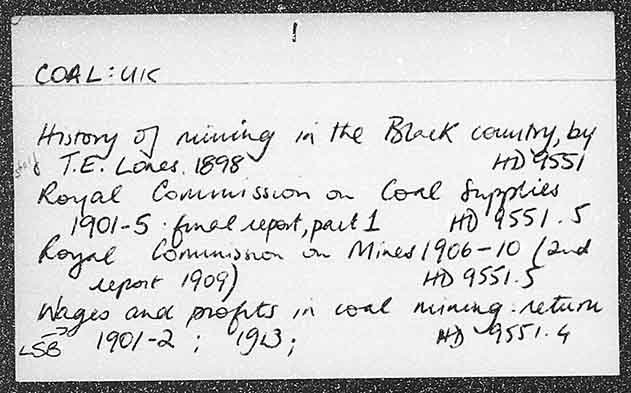 !
COAL: UK
History of mining in the Black country, by
T.E. Lones. 1898 HD 9551
Royal Commission on Coal Supplies
1901-5. final report, part 1 HD 9551.5
Royal Commission on Mines 1906-10 (2nd
report 1909) HD 9551.5
Wages and profits in coal mining. return
LSB 1901-2; 1913; HD 9551.4